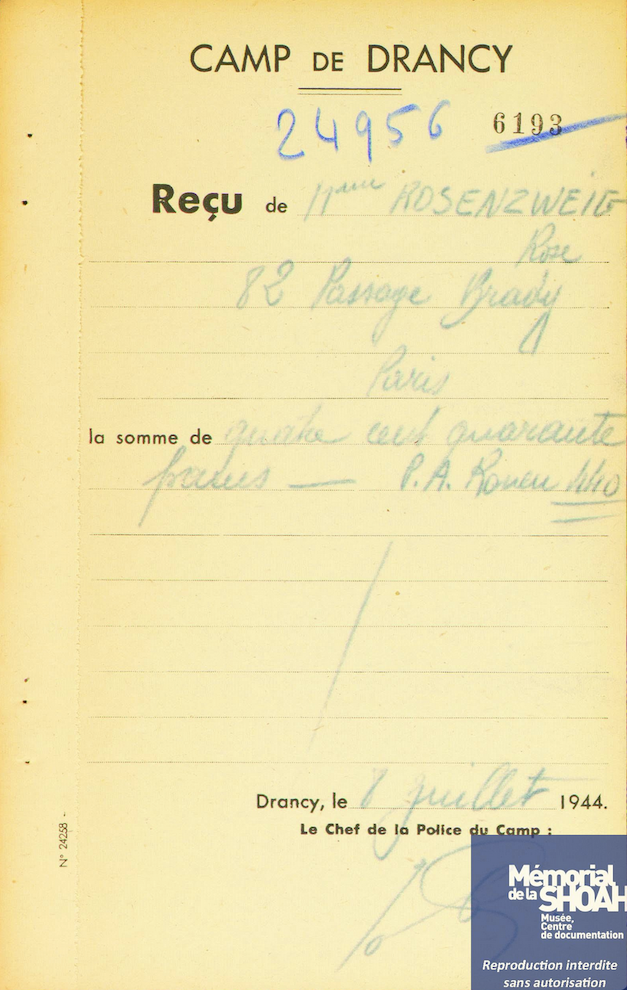 CAMP DE DRANCY
24956 6193
Reçu de Mme ROSENZWEIG
Rose
82 Passage Brady
Paris
la somme de quatre cent quarante
francs — P.A. Rouen 440
Drancy, le 8 juillet 1944.
Le Chef de la Police du Camp :
N° 24258 -
Mémorial
de la SHOAH
Musée,
Centre
de documentation
Reproduction interdite
sans autorisation